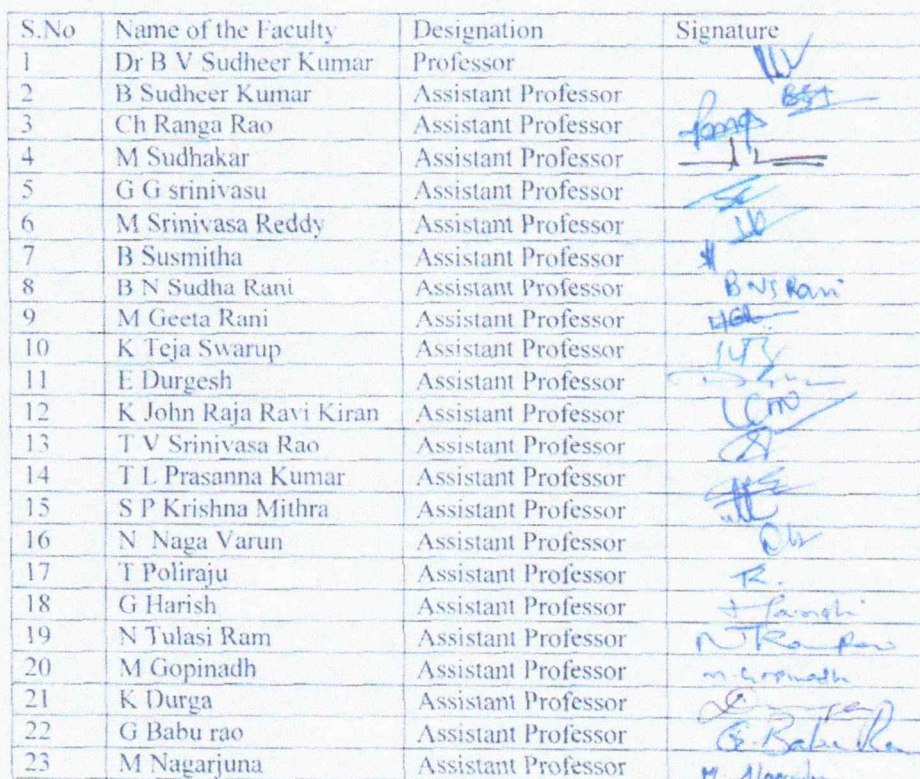 S.No Name of the Faculty Designation Signature
1 Dr B V Sudheer Kumar Professor
2 B Sudheer Kumar Assistant Professor
3 Ch Ranga Rao Assistant Professor
4 M Sudhakar Assistant Professor
5 G G srinivasu Assistant Professor
6 M Srinivasa Reddy Assistant Professor
7 B Susmitha Assistant Professor
8 B N Sudha Rani Assistant Professor B N S Rani
9 M Geeta Rani Assistant Professor
10 K Teja Swarup Assistant Professor
11 E Durgesh Assistant Professor
12 K John Raja Ravi Kiran Assistant Professor
13 T V Srinivasa Rao Assistant Professor
14 T L Prasanna Kumar Assistant Professor
15 S P Krishna Mithra Assistant Professor
16 N Naga Varun Assistant Professor
17 T Poliraju Assistant Professor
18 G Harish Assistant Professor
19 N Tulasi Ram Assistant Professor
20 M Gopinadh Assistant Professor m. Gopinadh
21 K Durga Assistant Professor
22 G Babu rao Assistant Professor G. Babu Rao
23 M Nagarjuna Assistant Professor